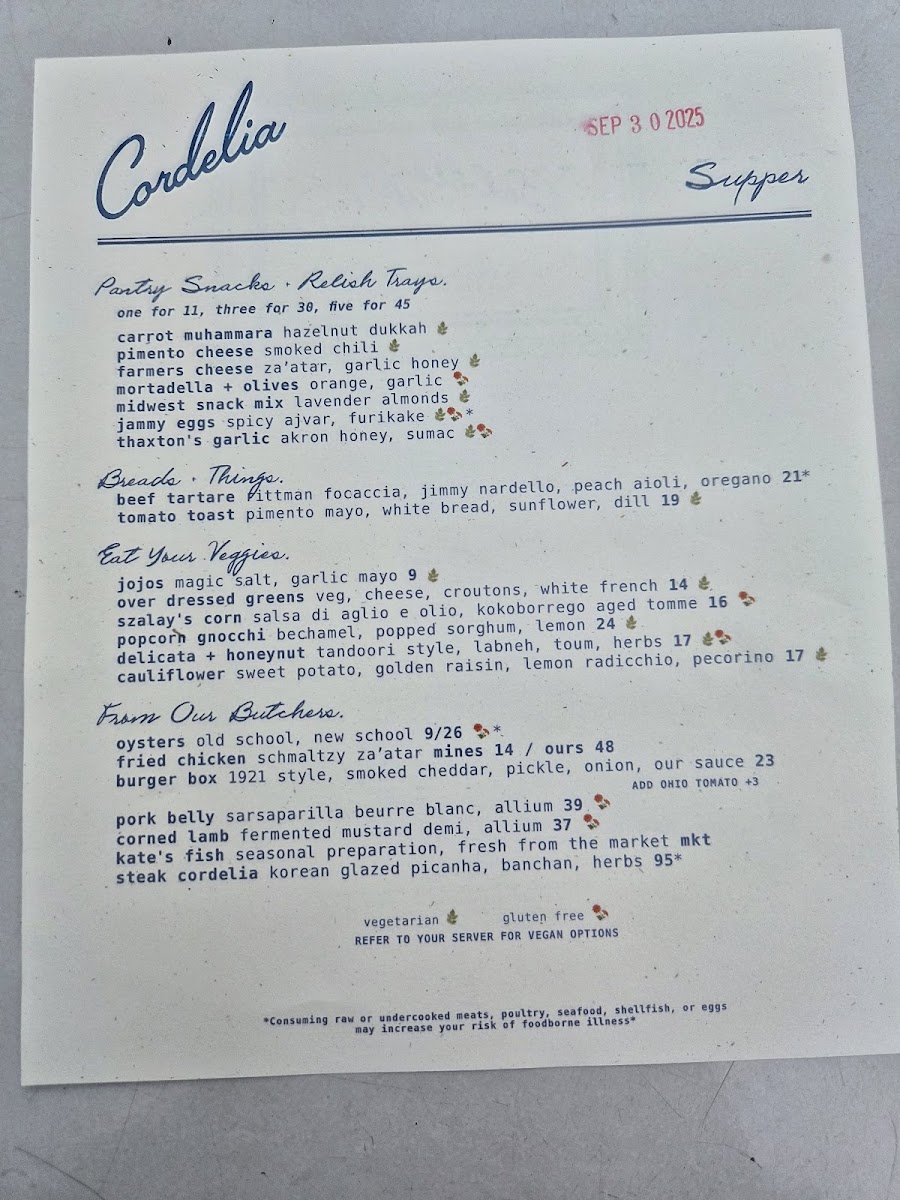 Cordelia
SEP 30 2025
Supper
Pantry Snacks · Relish Trays.
one for 11, three for 30, five for 45
carrot muhammara hazelnut dukkah
pimento cheese smoked chili
farmers cheese za'atar, garlic honey
mortadella + olives orange, garlic
midwest snack mix lavender almonds
jammy eggs spicy ajvar, furikake *
thaxton's garlic akron honey, sumac
Breads · Things.
beef tartare pittman focaccia, jimmy nardello, peach aioli, oregano 21*
tomato toast pimento mayo, white bread, sunflower, dill 19
Eat Your Veggies.
jojos magic salt, garlic mayo 9
over dressed greens veg, cheese, croutons, white french 14
szalay's corn salsa di aglio e olio, kokoborrego aged tomme 16
popcorn gnocchi bechamel, popped sorghum, lemon 24
delicata + honeynut tandoori style, labneh, toum, herbs 17
cauliflower sweet potato, golden raisin, lemon radicchio, pecorino 17
From Our Butchers.
oysters old school, new school 9/26 *
fried chicken schmaltzy za'atar mines 14 / ours 48
burger box 1921 style, smoked cheddar, pickle, onion, our sauce 23
ADD OHIO TOMATO +3
pork belly sarsaparilla beurre blanc, allium 39
corned lamb fermented mustard demi, allium 37
kate's fish seasonal preparation, fresh from the market mkt
steak cordelia korean glazed picanha, banchan, herbs 95*
vegetarian gluten free
REFER TO YOUR SERVER FOR VEGAN OPTIONS
*Consuming raw or undercooked meats, poultry, seafood, shellfish, or eggs
may increase your risk of foodborne illness*